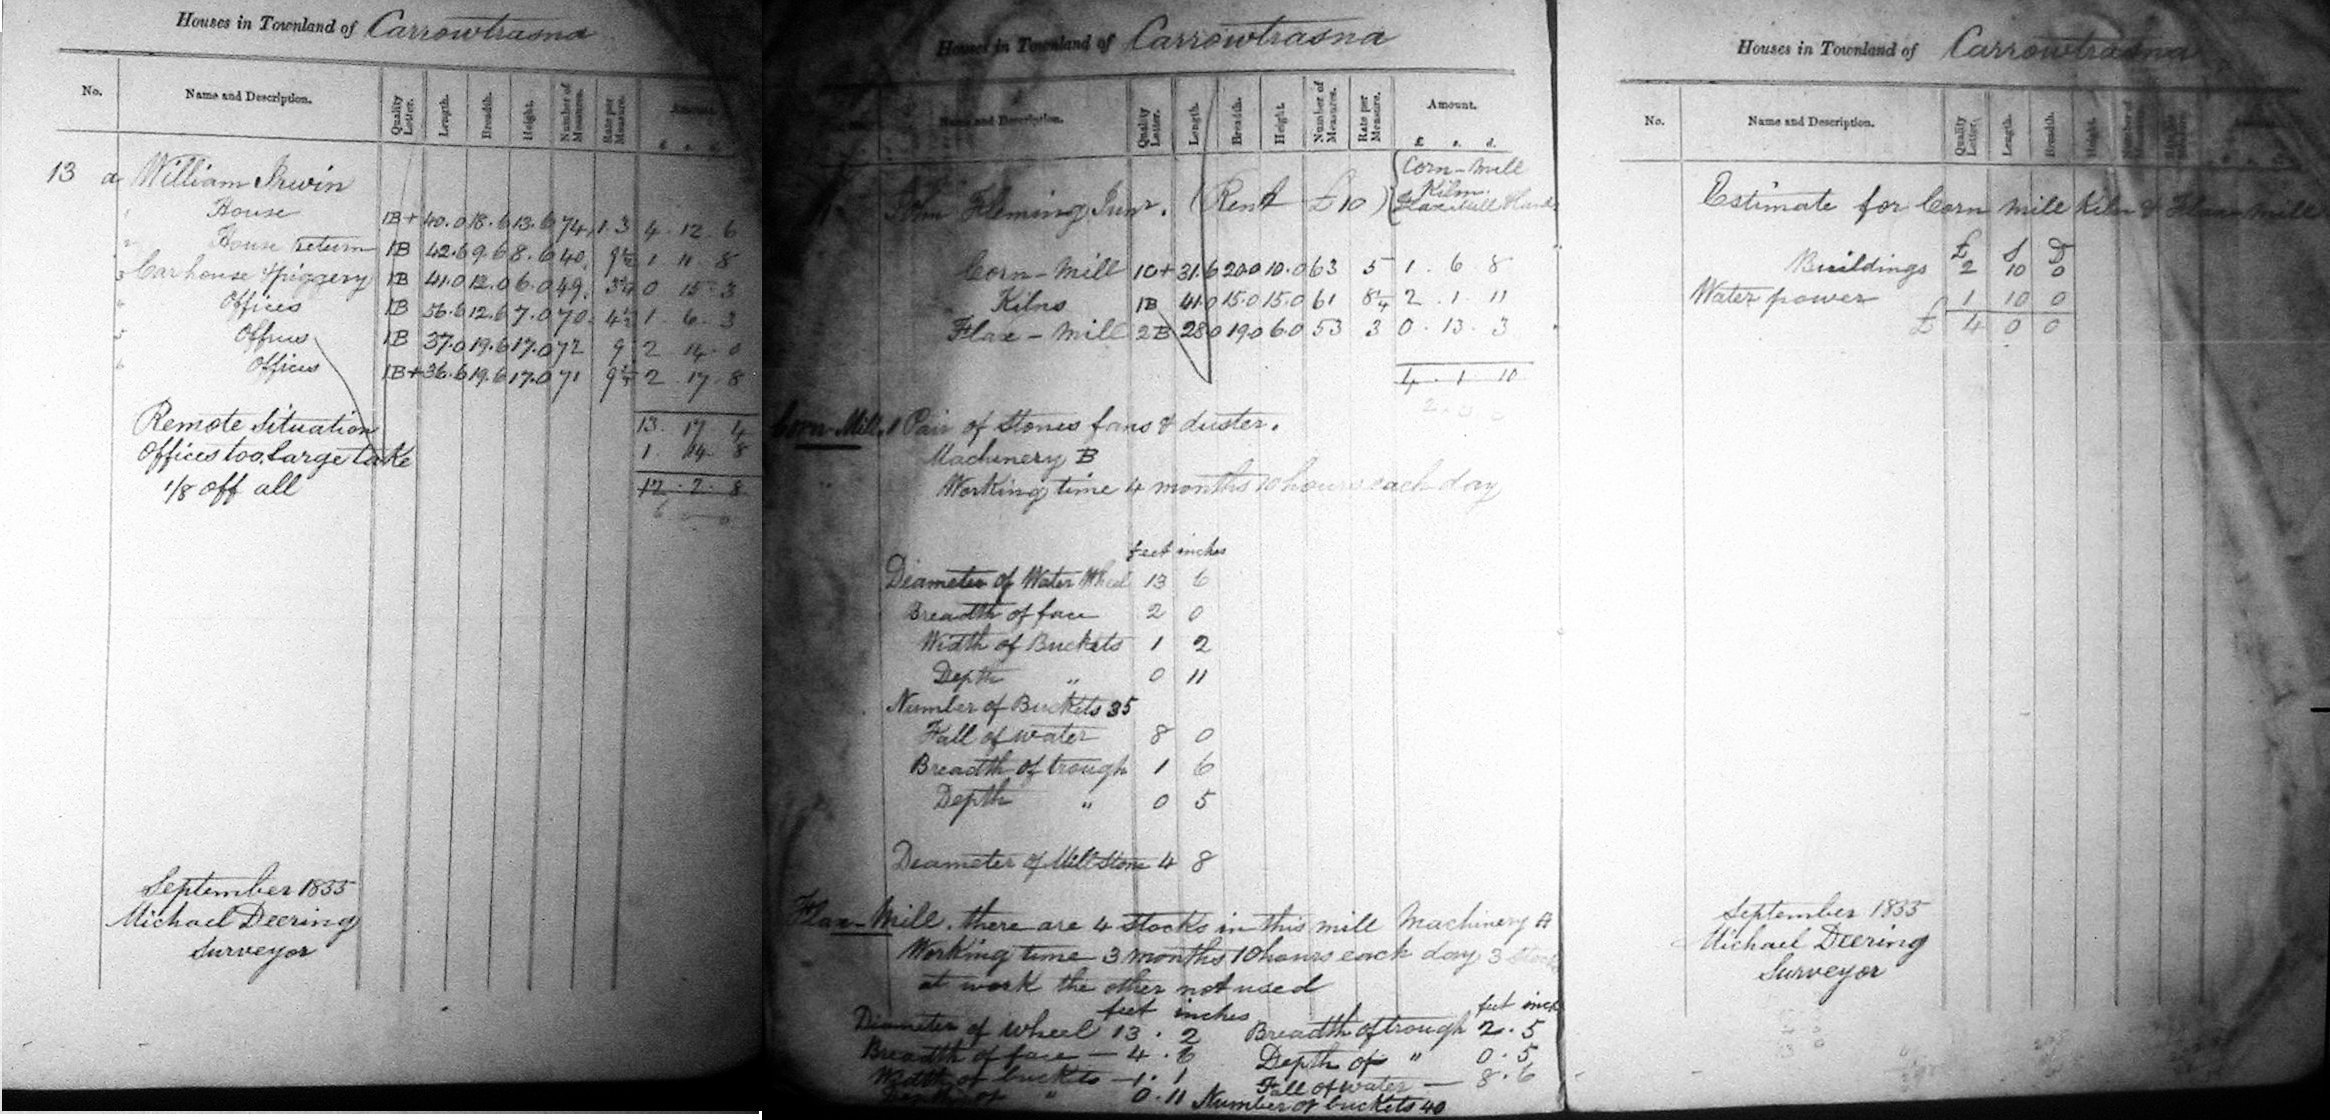 Houses in Townland of Carrowtrasna
No. Name and Description. Quality Letter. Length. Breadth. Height. Number of Measures. Rate per Measure. Amount.
£ s. d.
13 a William Irwin
1 House 1B+ 40.0 18.6 13.6 74 1.3 4.12.6
2 House return 1B 42.6 9.6 8.6 40 9½ 1 11 8
3 Carhouse & piggery 1B 41.0 12.0 6.0 49 3¾ 0 15 3
4 Offices 1B 56.6 12.6 7.0 70 4½ 1.6.3
5 Offices 1B 37.0 19.6 17.0 72 9 2 14.0
6 Offices 1B+ 36.6 19.6 17.0 71 2.17.8
Remote Situation 13.17 4
Offices too large take 1.14 8
1/8 off all 12.2.8
6 0 0
September 1835
Michael Deering
Surveyor
Houses in Townland of Carrowtrasna
Name and Description. Quality Letter. Length. Breadth. Height. Number of Measures. Rate per Measure. Amount.
£ s. d.
John Fleming Junr. (Rent £10) {Corn-mill
Kiln
Flaxmill & land
Corn-Mill 1C+ 31.6 20.0 10.0 63 5 1.6.8
Kilns 1B 41.0 15.0 15.0 61 8¼ 2.1.11
Flax-Mill 2B 28.0 19.0 6.0 53 3 0.13.3
4.1.10
Corn-Mill, 1 Pair of Stones fans & duster.
Machinery B
Working time 4 months 10 hours each day
feet inches
Diameter of Water Wheel 13 6
Breadth of face 2 0
Width of Buckets 1 2
Depth " 0 11
Number of Buckets 35
Fall of water 8 0
Breadth of trough 1 6
Depth " 0 5
Diameter of Mill Stone 4 8
Flax-Mill. there are 4 stocks in this mill Machinery A
Working time 3 months 10 hours each day 3 stocks
at work the other not used
feet inches feet inch
Diameter of wheel 13.2 Breadth of trough 2.5
Breadth of face — 4.6 Depth of " 0.5
Width of buckets — 1.1 Fall of water — 8.6
Depth of " 0.11 Number of buckets 40
Houses in Townland of Carrowtrasna
No. Name and Description. Quality Letter. Length. Breadth. Height. Number of Measures. Rate per Measure. Amount.
Estimate for Corn mill Kiln & Flax-mill
£ S D
Buildings 2 10 0
Water power 1 10 0
£ 4 0 0
September 1835
Michael Deering
Surveyor